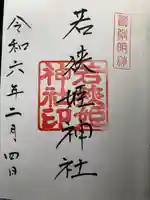 若狭姫神社
若狭姫
神社印
令和六年二月四日